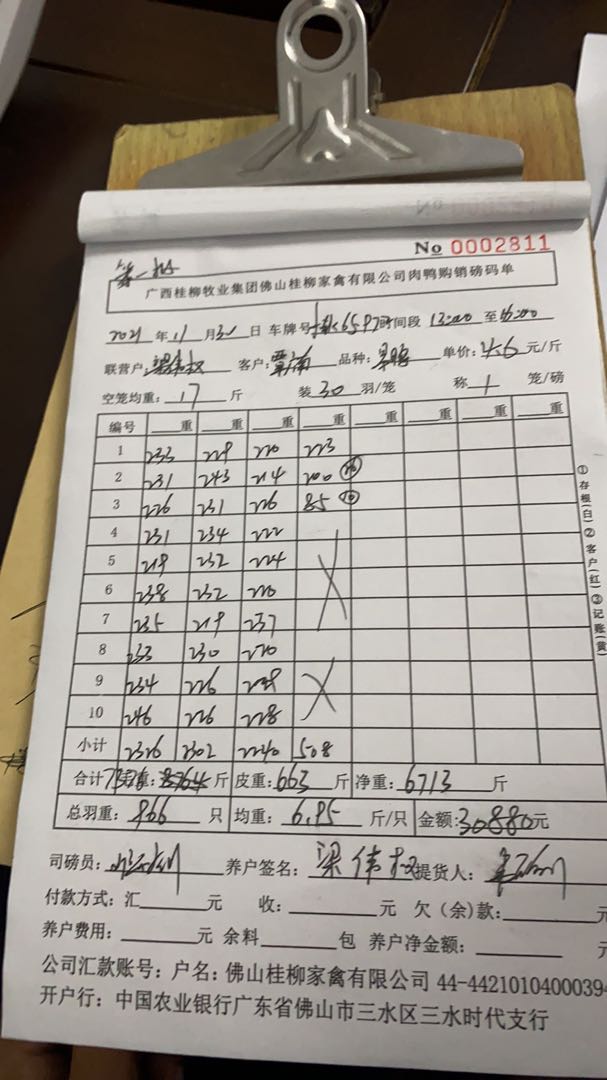 No 0002811
第一批
广西桂柳牧业集团佛山桂柳家禽有限公司肉鸭购销磅码单
2021 年 11 月 30 日 车牌号 6597 时间段 13:00 至
联营户: 客户: 覃南 品种: 单价: 4.6 元/斤
空笼均重: 17 斤 装 30 羽/笼 称 1 笼/磅
编号 重 重 重 重 重 重 重 重
1 233 229 220 223
2 231 243 214 200
3 226 231 226 85
4 231 234 222
5 219 232 224
6 238 232 220
7 235 219 237
8 233 230 220
9 234 226
10 246 226 228
小计 2326 2302 2240 508
合计 7376 斤 皮重: 663 斤 净重: 6713 斤
总羽重: 966 只 均重: 6.95 斤/只 金额: 30880 元
司磅员: 养户签名: 梁伟权 提货人:
付款方式: 汇 元 收: 元 欠(余)款: 元
养户费用: 元 余料 包 养户净金额: 元
公司汇款账号: 户名: 佛山桂柳家禽有限公司 44-44210104000394
开户行: 中国农业银行广东省佛山市三水区三水时代支行
①存根(白)②客户(红)③记账(黄)